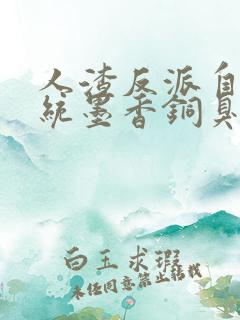 人渣反派自
統墨香銅臭
白玉求瑕
未经同意禁止转载